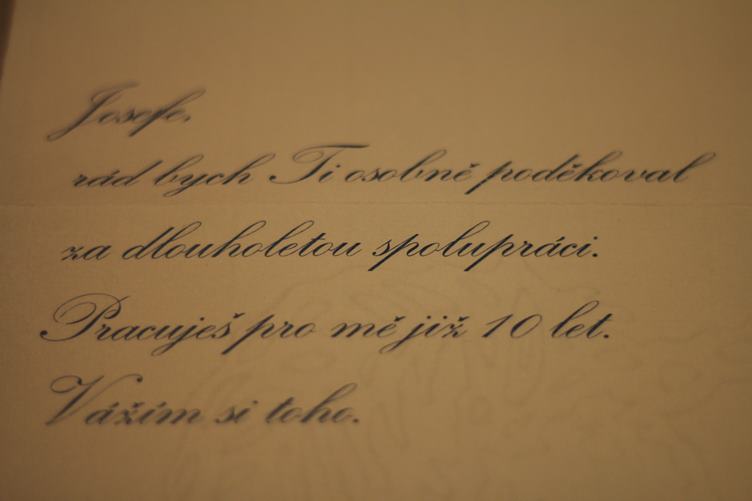 Josefe,
rád bych Ti osobně poděkoval
za dlouholetou spolupráci.
Pracuješ pro mě již 10 let.
Vážím si toho.